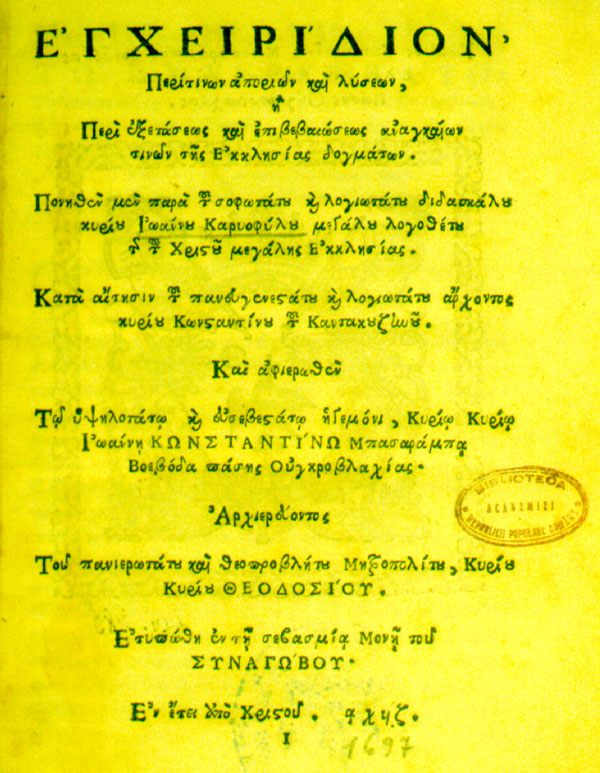 Ε᾿ΓΧΕΙΡΙ´ΔΙΟΝ,
Περίτινων ἀποριῶν καὶ λύσεων,
ἢ
Περὶ ἐξετάσεως καὶ ἐπιβεβαιώσεως ἀναγκαίων
τινῶν τῆς Ε᾿κκλησίας δογμάτων.
Πονηθὲν μὲν παρὰ τοῦ σοφωτάτου ϗ λογιωτάτου διδασκάλου
κυρίου Ἰωάννου Καρυοφύλου μεγάλου λογοθέτου
τῆς τοῦ Χριστοῦ μεγάλης Ε᾿κκλησίας.
Κατὰ αἴτησιν τοῦ πανευγενεστάτου ϗ λογιωτάτου ἄρχοντος
κυρίου Κωνσταντίνου τοῦ Καντακουζηνοῦ.
Καὶ ἀφιερωθὲν
Τῷ ὑψηλοτάτῳ ϗ εὐσεβεστάτῳ ἡγεμόνι, Κυρίῳ Κυρίῳ
Ἰωαίνῃ ΚΩΝΣΤΑΝΤΙ´ΝΩ Μπασαράμπᾳ
Βοεβόδα πάσης Οὐγκροβλαχίας.
Ἀρχιερεύοντος
Τοῦ πανιερωτάτου καὶ θεοπροβλήτου Μητροπολίτου, Κυρίου
Κυρίου ΘΕΟΔΟΣΙ´ΟΥ.
Ε᾿τυπώθη ἐν τῇ σεβασμίᾳ Μονῇ τοῦ
ΣΥΝΑΓΩ´ΒΟΥ.
Ε᾿ν ἔτει ἀπὸ Χριστοῦ. αχϟζ.
I
1697
BIBLIOTECA
ACADEMIEI
REPUBLICII POPULARE ROMÎNE